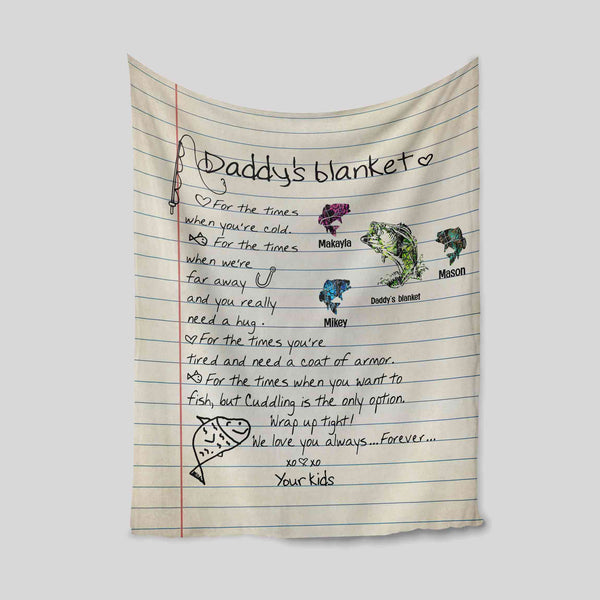 Daddy's blanket
For the times
when you're cold.
For the times
when we're
far away
and you really
need a hug.
Makayla
Mikey
Daddy's blanket
Mason
For the times you're
tired and need a coat of armor.
For the times when you want to
fish, but Cuddling is the only option.
Wrap up tight!
We love you always...Forever...
xo♡xo
Your kids